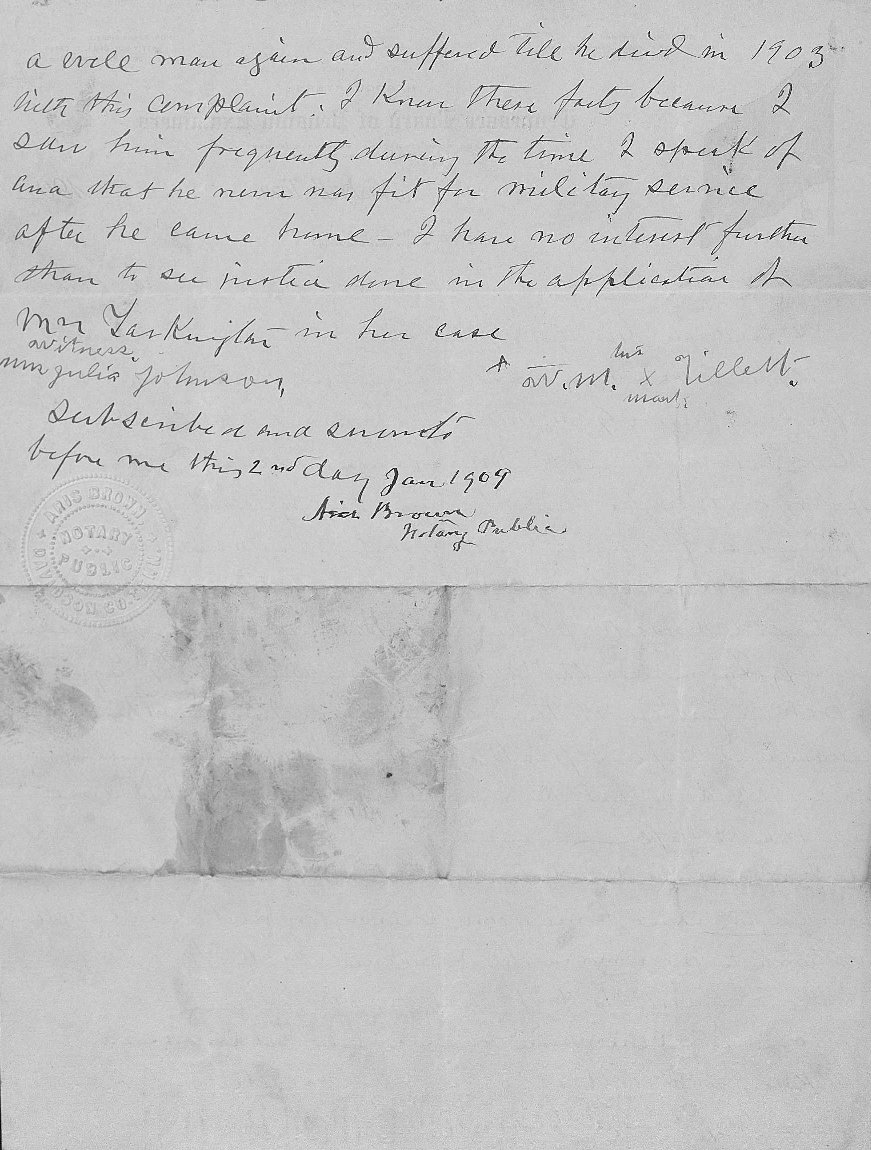 a well man again and suffered till he died in 1903
with this complaint. I know these facts because I
saw him frequently during the time I speak of
and that he never was fit for military service
after he came home - I have no interest further
than to see justice done in the application of
Mrs in her case
witness
Mrs Julia Johnson,
his
W. M. x Tillett.
mark
Subscribed and sworn to
before me this 2nd day Jan 1909
Aris Brown
Notary Public
ARIS BROWN
NOTARY
PUBLIC
DAVIDSON CO.